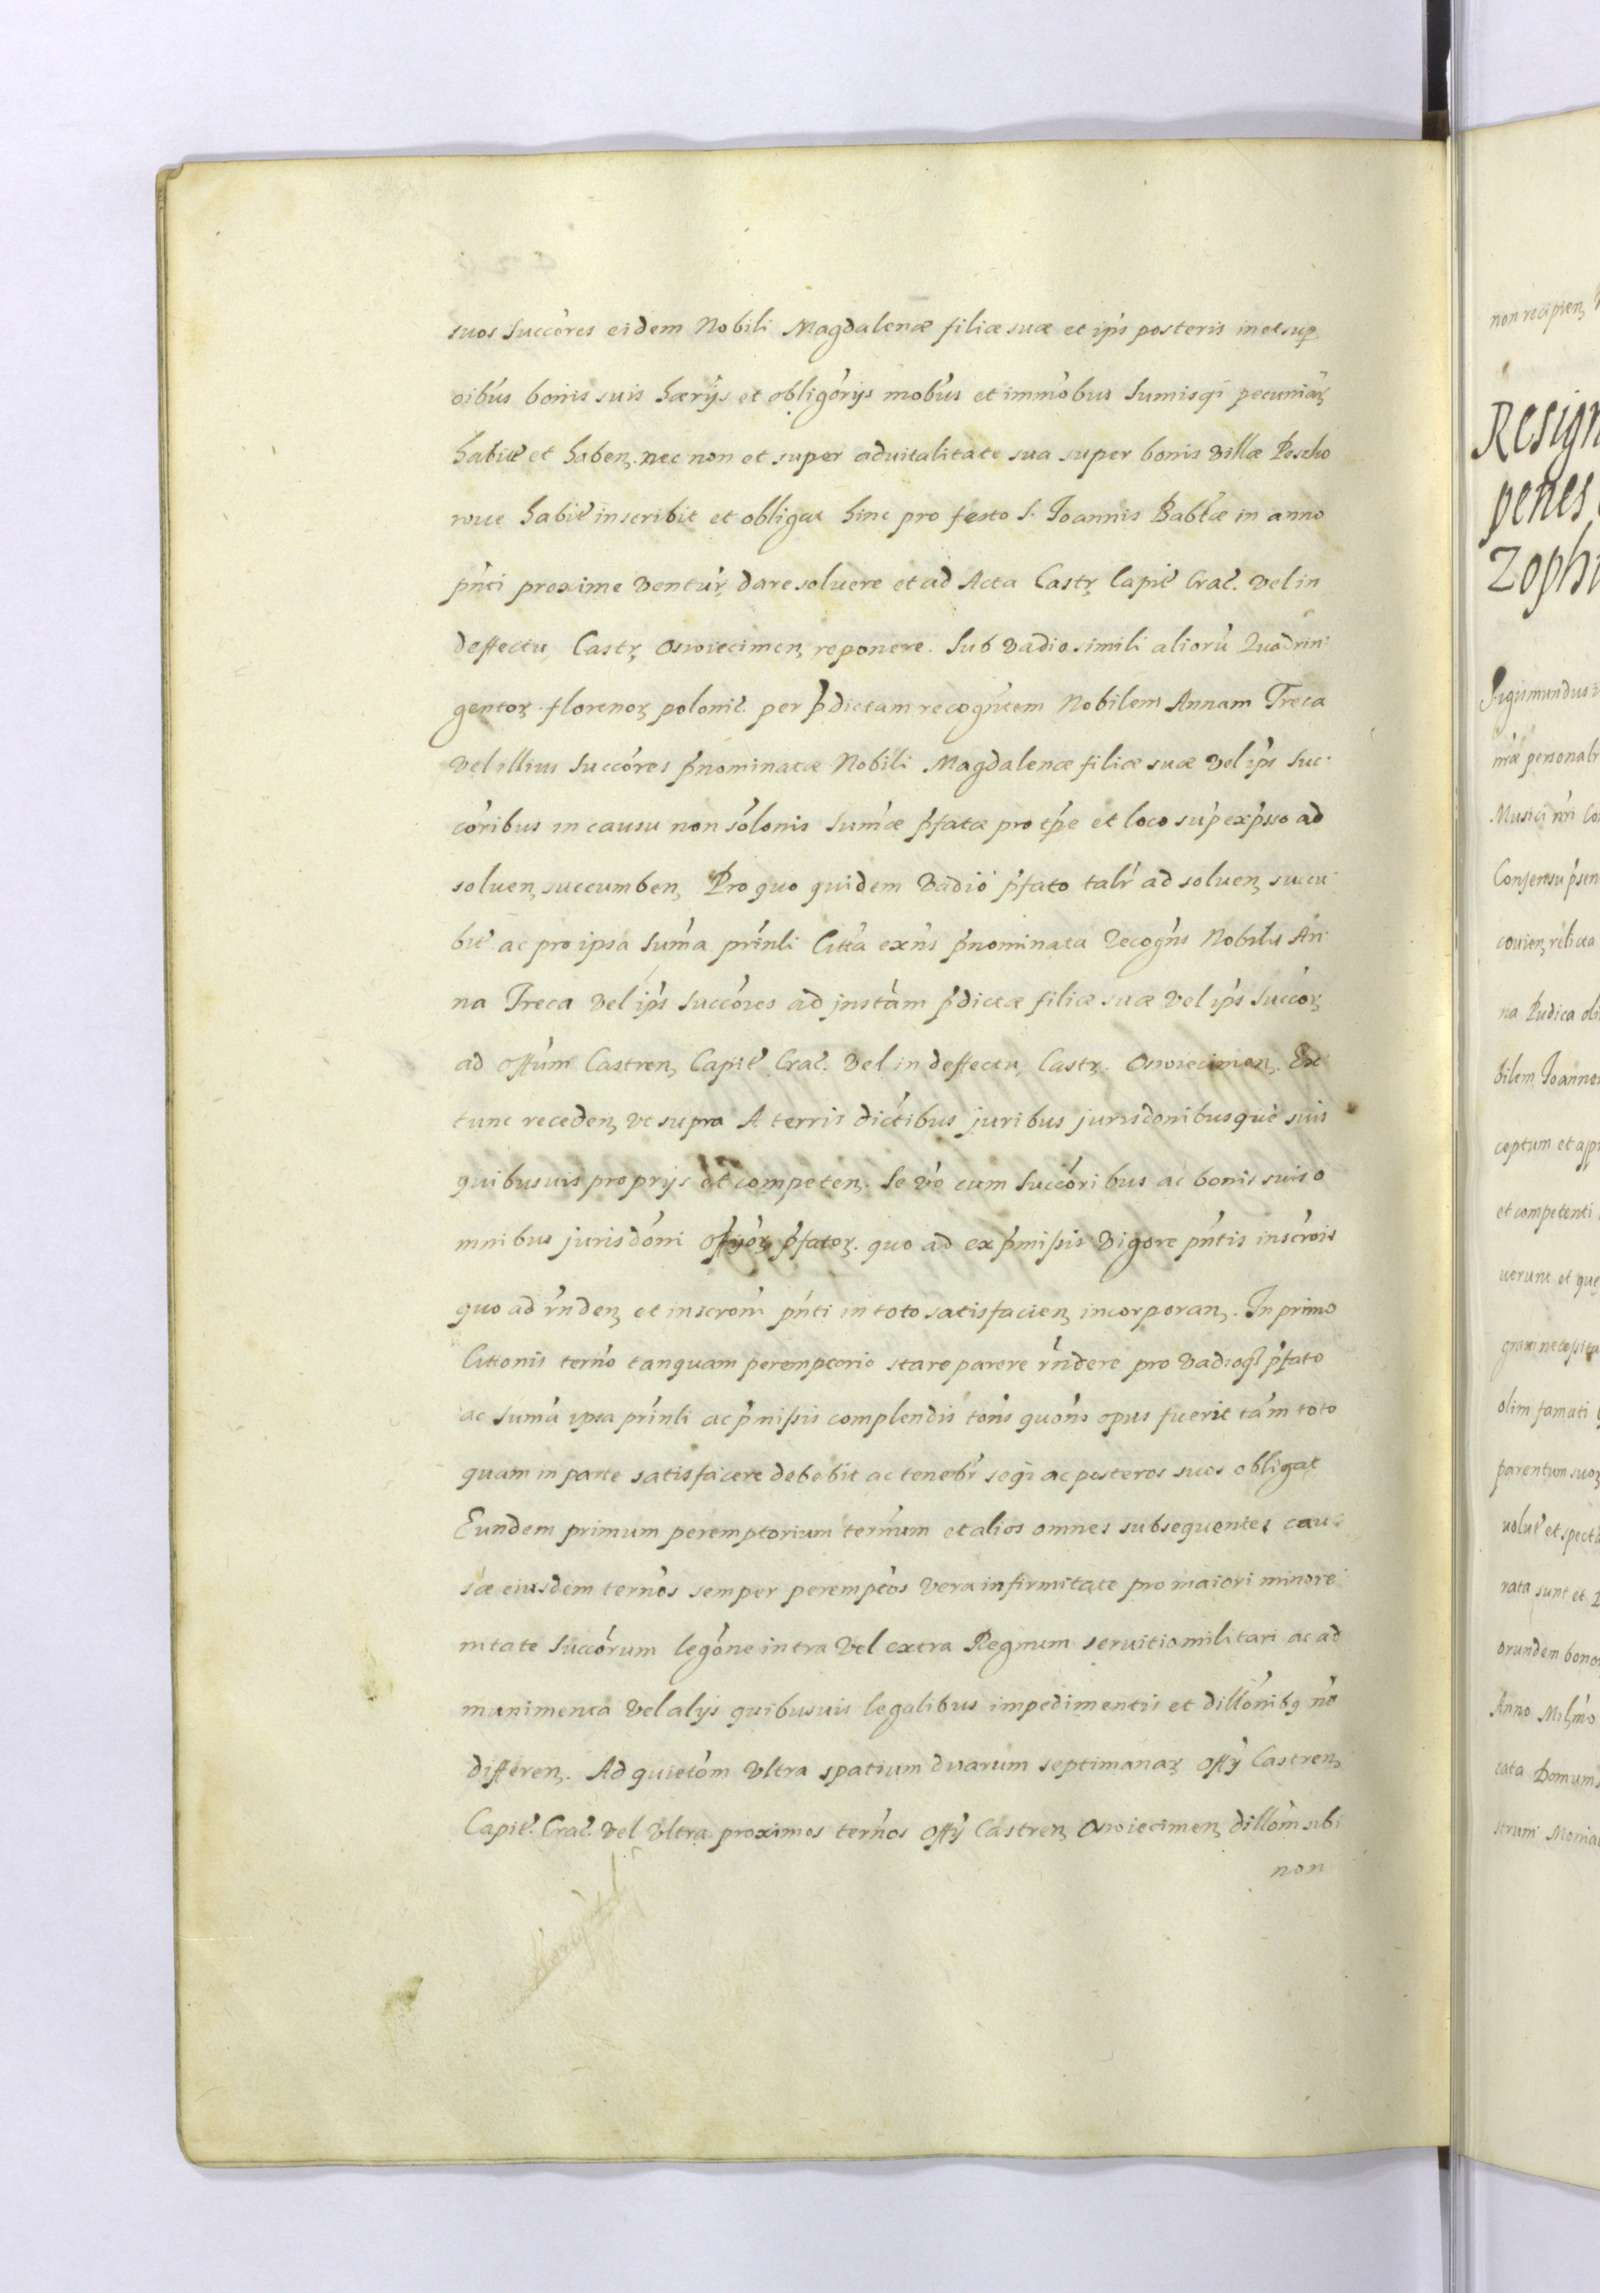 suos Succóres eidem Nobili Magdalenæ filiæ suæ et ip̃s posteris in et sup
oibús bonis suis hærijs et obligórijs mobús et immóbus Sumisq́ pecuniarꝫ
habit̃ et habenꝫ. nec non et super aduitalitate sua super bonis Villæ Poszko
wice habit̃ inscribit et obligat hinc pro festo S. Joannis Babtæ in anno
pñti proxime Venturꝫ dare soluere et ad Acta Castrꝫ Capit̃ Crac̃. Vel in
deffectu Castrꝫ Oswiecimenꝫ reponere. Sub Vadio simili aliorũ Quadrin
gentorꝫ. florenorꝫ polonic̃. per p̃dictam recogñtem Nobilem Annam Treca
Vel illius Succóres p̃nominatæ Nobili Magdalenæ filiæ suæ Vel ip̃s Suc
córibus in causu non sólonis Sum̃æ p̃fatæ pro tp̃e et loco sup̃ exp̃sso ad
soluenꝫ succumbenꝫ Pro quo quidem Vadio p̃fato talr̃ ad soluenꝫ succu
bit̃ ac pro ipsa Sum̃a prinli Citt̃a exñs p̃nominata Recogñs Nobilis An
na Treca Vel ip̃s Succóres ad jnstãm p̃dictæ filiæ suæ Vel ip̃s Succorꝫ
ad Off̃um Castrenꝫ Capit̃ Crac̃. Vel in deffectu Castrꝫ. Oswiecimenꝫ. Ex
tunc recedenꝫ vt supra A terris dict̃ibus juribus jurisdonibusque suis
quibusuis proprijs et competenꝫ. Se vó cum Succóribus ac bonis suis o
mnibus jurisdóni offijorꝫ p̃fatorꝫ. quo ad ex p̃missis Vigore pñtis inscrõis
quo ad rñdenꝫ et inscrom̃ pñti in toto satisfacienꝫ incorporanꝫ. In primo
Cittonis term̃o tanquam peremptorio stare parere rñdere pro Vadioq́ p̃fato
ac Sum̃a ipsa prinli ac p̃missis complendis toñs quoñs opus fuerit tãm toto
quam in parte satisfacere debebit ac tenebr̃ seq́ ac posteros suos obligat
Eundem primum peremptorium term̃um et alios omnes subsequentes cau
sæ eiusdem term̃os semper perempt̃os Vera infirmitate pro maiori minore
nitate Succórum legóne intra Vel extra Regnum seruitio militari ac ad
munimenta Vel alijs quibusuis legalibus impedimentis et dillónibꝫ nõ
differenꝫ. Ad quietóm Vltra spatium duarum septimanarꝫ Offij Castrenꝫ
Capit̃. Crac̃. Vel Vltra proximos term̃os Offij Castrenꝫ Oswiecimenꝫ dillom̃ sibi
non
non recipienꝫ
Resign
penes
Zophi
Sigismundus
nræ personalr
Musici nr̃i
Consensu p̃sen
na Pudica oli
bilem Joannem
ceptum et app
et competenti
uerunt et que
olim famati
parentum suorꝫ
rata sunt et
orundem bono
cata Domum